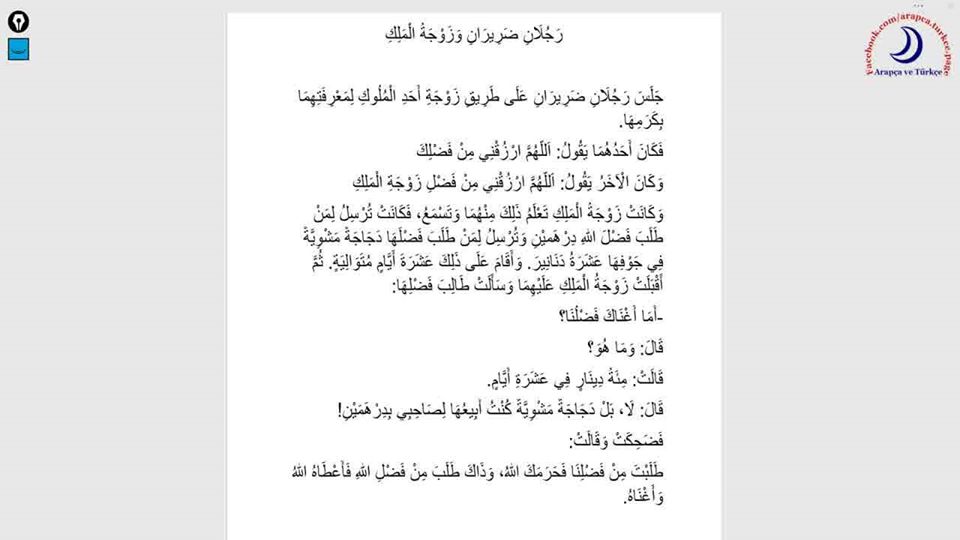 رَجُلَانِ ضَرِيرَانِ وَزَوْجَةُ الْمَلِكِ
جَلَسَ رَجُلَانِ ضَرِيرَانِ عَلَى طَرِيقِ زَوْجَةِ أَحَدِ الْمُلُوكِ لِمَعْرِفَتِهِمَا
بِكَرَمِهَا.
فَكَانَ أَحَدُهُمَا يَقُولُ: اَللَّهُمَّ ارْزُقْنِي مِنْ فَضْلِكَ
وَكَانَ الْآخَرُ يَقُولُ: اَللَّهُمَّ ارْزُقْنِي مِنْ فَضْلِ زَوْجَةِ الْمَلِكِ
وَكَانَتْ زَوْجَةُ الْمَلِكِ تَعْلَمُ ذَلِكَ مِنْهُمَا وَتَسْمَعُ، فَكَانَتْ تُرْسِلُ لِمَنْ
طَلَبَ فَضْلَ اللهِ دِرْهَمَيْنِ وَتُرْسِلُ لِمَنْ طَلَبَ فَضْلَهَا دَجَاجَةً مَشْوِيَّةً
فِي جَوْفِهَا عَشَرَةُ دَنَانِيرَ. وَأَقَامَ عَلَى ذَلِكَ عَشَرَةَ أَيَّامٍ مُتَوَالِيَةٍ. ثُمَّ
أَقْبَلَتْ زَوْجَةُ الْمَلِكِ عَلَيْهِمَا وَسَأَلَتْ طَالِبَ فَضْلِهَا:
-أَمَا أَغْنَاكَ فَضْلُنَا؟
قَالَ: وَمَا هُوَ؟
قَالَتْ: مِئَةُ دِينَارٍ فِي عَشَرَةِ أَيَّامٍ.
قَالَ: لَا، بَلْ دَجَاجَةً مَشْوِيَّةً كُنْتُ أَبِيعُهَا لِصَاحِبِي بِدِرْهَمَيْنِ!
فَضَحِكَتْ وَقَالَتْ:
طَلَبْتَ مِنْ فَضْلِنَا فَحَرَمَكَ اللهُ، وَذَاكَ طَلَبَ مِنْ فَضْلِ اللهِ فَأَعْطَاهُ اللهُ
وَأَغْنَاهُ.
Facebook.com/arapca.turkce.page
Arapça ve Türkçe